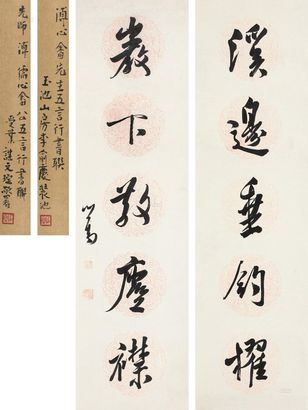 溪邊垂釣櫂
巖下散塵襟
心畬
溥心畬先生五言行書聯
玉池山房李 慶裝池
先師溥儒心畬公五言行書聯
受業 文 敬署